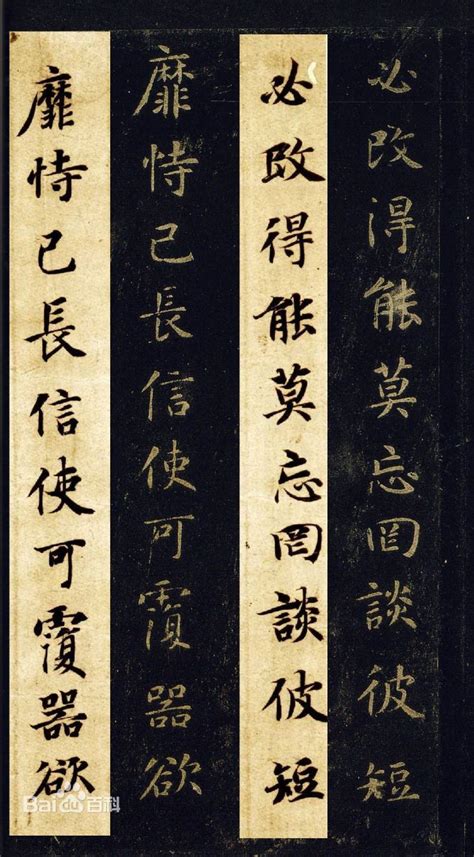 必改得能莫忘罔談彼短
必改得能莫忘罔談彼短
靡恃己長信使可覆器欲
靡恃己長信使可覆器欲
Bai du 百科